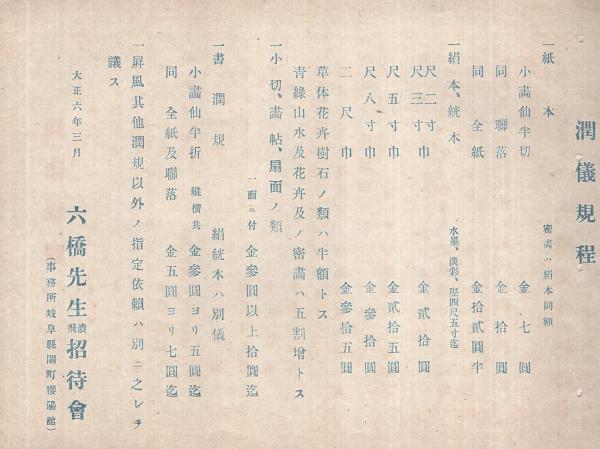 潤儀規程
一紙本 密畫ハ絹本同額
小畫仙半切 金七圓
同聯落 金拾圓
同全紙 金拾貳圓半
一絹本、絖本 水墨、淡彩、竪四尺五寸迄
尺二寸
尺三寸巾 金貳拾圓
尺五寸巾 金貳拾五圓
尺八寸巾 金參拾圓
二尺巾 金參拾五圓
草体花卉樹石ノ類ハ半額トス
青綠山水及花卉及ノ密畫ハ五割増トス
一小切、畫帖、扇面ノ類
一面ニ付 金參圓以上拾圓迄
一書潤規 絹絖本ハ別儀
小畫仙半折 縱橫共 金參圓ヨリ五圓迄
同 全紙及聯落 金五圓ヨリ七圓迄
一屏風其他潤規以外ノ指定依頼ハ別ニ之レヲ
議ス
大正六年三月
六橋先生濃飛招待會
(事務所岐阜縣關町櫻陽館)